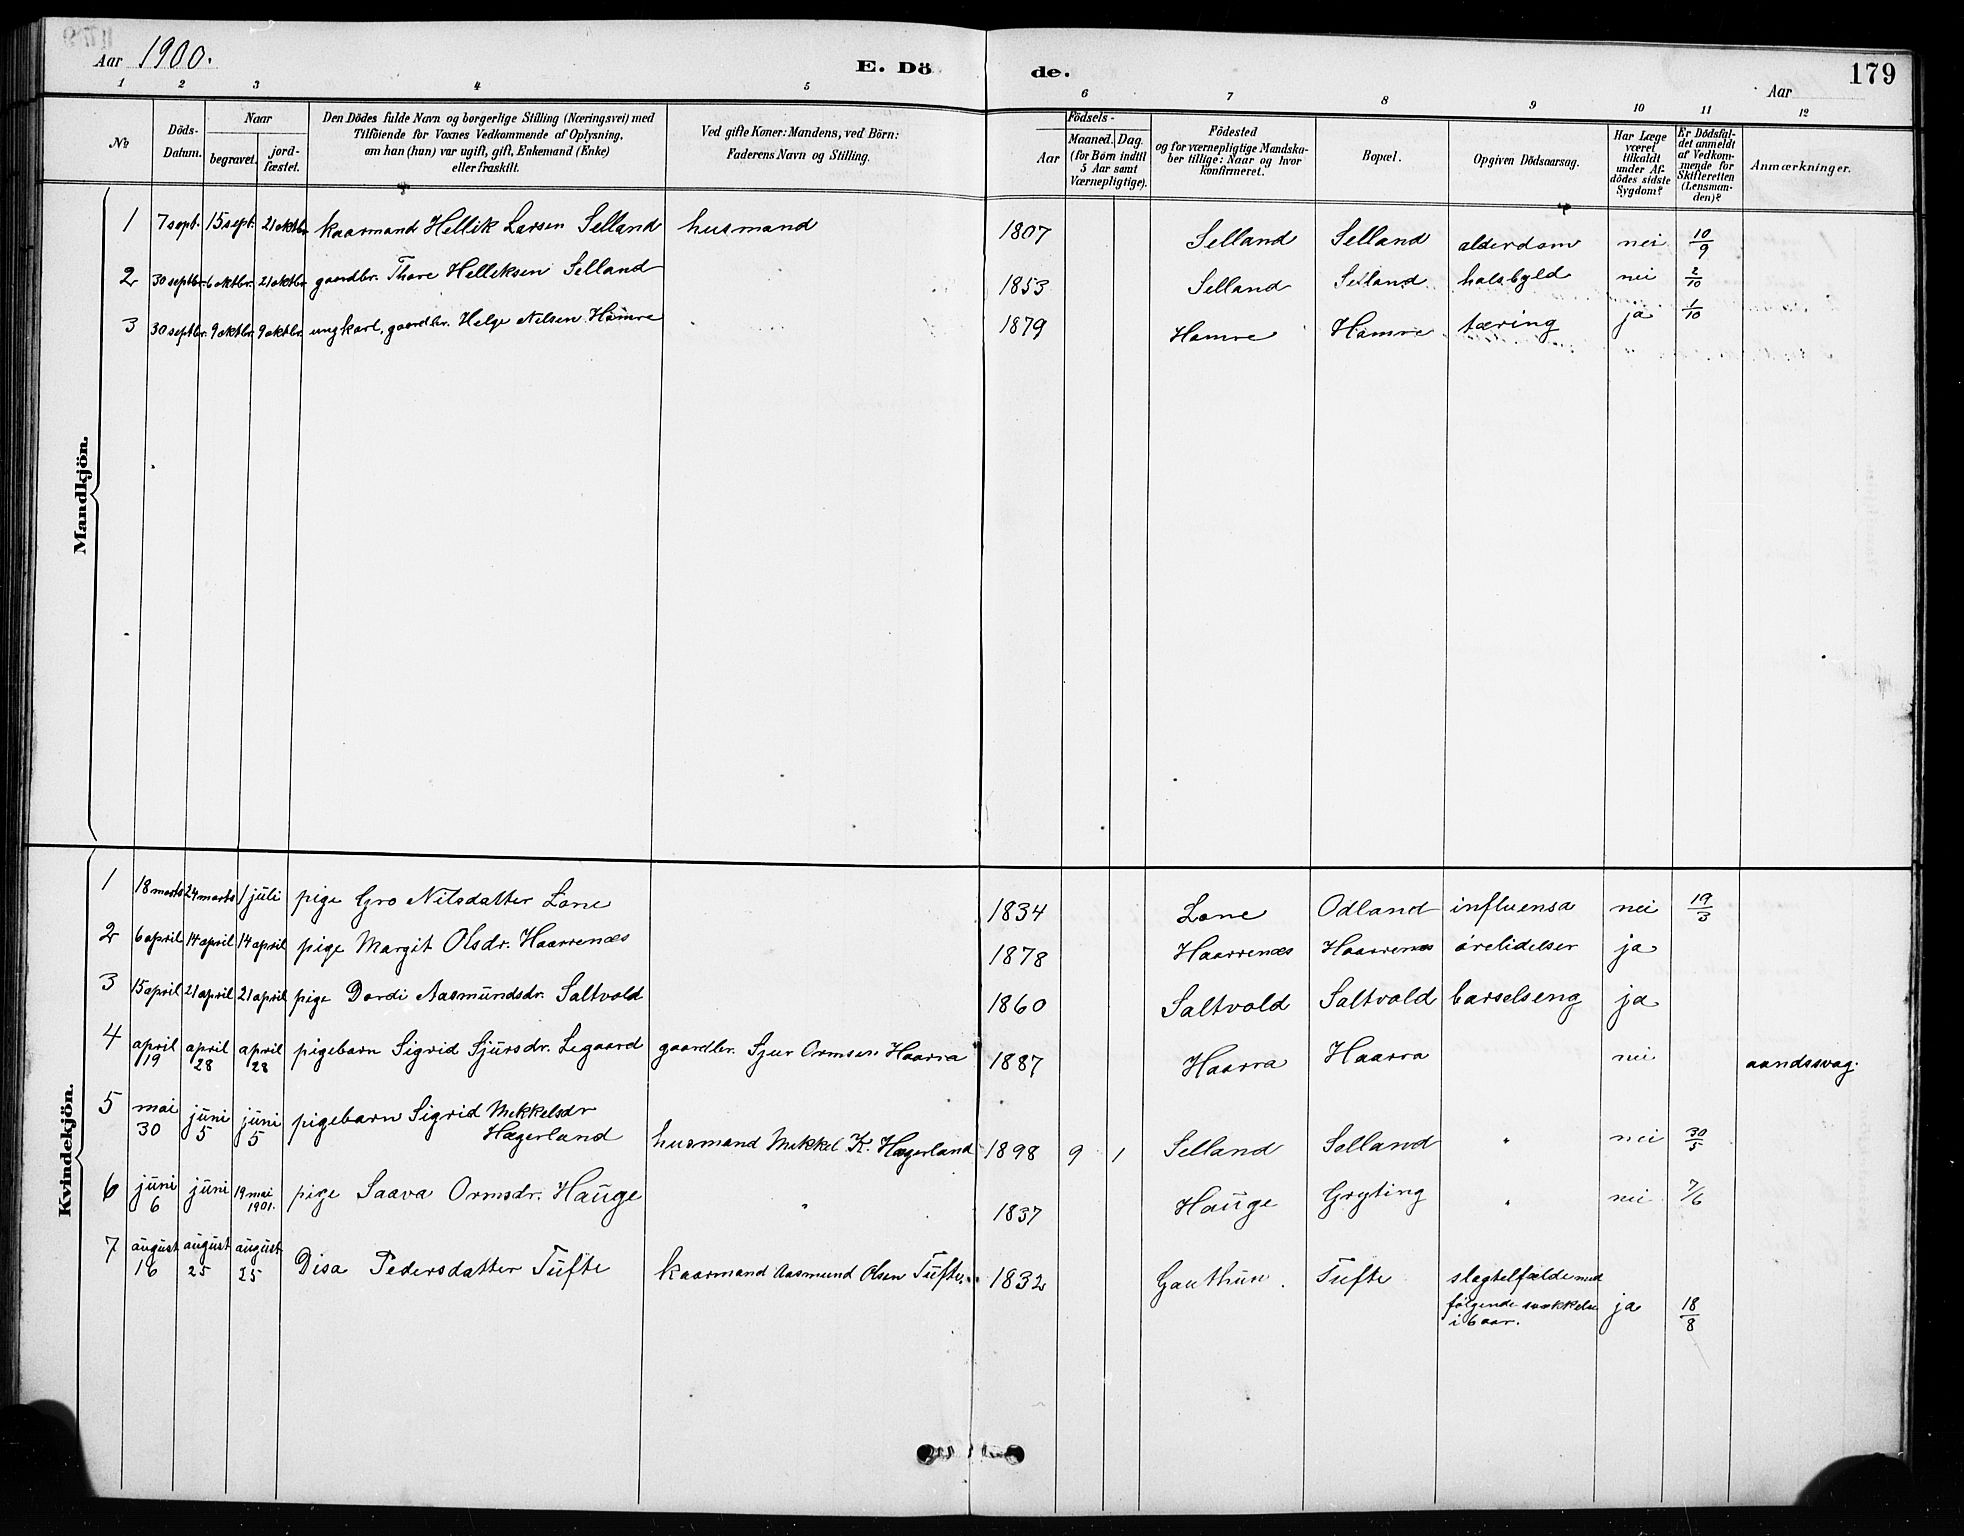 Aar 1900.
E. Dö
de.
Aar
179
1 2 3 4 5 6 7 8 9 10 11 12
№
Döds-
Datum.
Naar
begravet.
jord-
fæstet.
Den Dödes fulde Navn og borgerlige Stilling (Næringsvei) med
Tilföiende for Voxnes Vedkommende af Oplysning,
om han (hun) var ugift, gift, Enkemand (Enke)
eller fraskilt.
Ved gifte Koner: Mandens, ved Börn:
Faderens Navn og Stilling.
Födsels-
Aar
Maaned. Dag.
(for Börn indtil
5 Aar samt
Værnepligtige).
Födested
og for værnepligtige Mandska-
ber tillige: Naar og hvor
konfirmeret.
Bopæl.
Opgiven Dödsaarsag.
Har Læge
været
tilkaldt
under Af-
dödes sidste
Sygdom?
Er Dödsfal-
det anmeldt
af Vedkom-
mende for
Skifteretten
(Lensman-
den)?
Anmærkninger.
Mandkjön.
1 7 sept. 15 sept. 21 oktbr. kaarmand Hellik Larsen Selland husmand 1807 Selland Selland alderdom nei 10/9
2 30 septbr. 6 oktbr. 21 oktbr. gaardbr. Thore Helliksen Selland 1853 Selland Selland halsbyld nei 2/10
3 30 septbr. 9 oktbr. 9 oktbr. ungkarl, gaardbr. Helge Nilsen Hamre 1879 Hamre Hamre tæring ja 1/10
Kvindekjön.
1 18 marts 24 marts 1 juli pige Gro Nilsdatter Lone 1834 Lone Odland influensa nei 19/3
2 6 april 14 april 14 april pige Margit Olsdr. Haarrenæs 1878 Haarrenæs Haarrenæs ørelidelser ja
3 15 april 21 april 21 april pige Dordi Aasmundsdr. Saltvold 1860 Saltvold Saltvold barselseng ja
4 april 19 april 28 april 28 pigebarn Sigrid Sjursdr. Legaard gaardbr. Sjur Ormsen Haarra 1887 Haarra Haarra nei aandssvag.
5 mai 30 juni 5 juni 5 pigebarn Sigrid Mekkelsdr
Hægerland husmand Mekkel K. Hægerland 1898 9 1 Selland Selland " nei 30/5
6 juni 6 juni 19 mai 1901. pige Saava Ormsdr. Hauge " 1837 Hauge Gryting " nei 7/6
7 august 16 august 25 august 25 Disa Pedersdatter Tufte kaarmand Aasmund Olsen Tufte 1832 Gauthun Tufte slagtelfælde med
følgende svækkelse ja 18/8
i 6 aar.